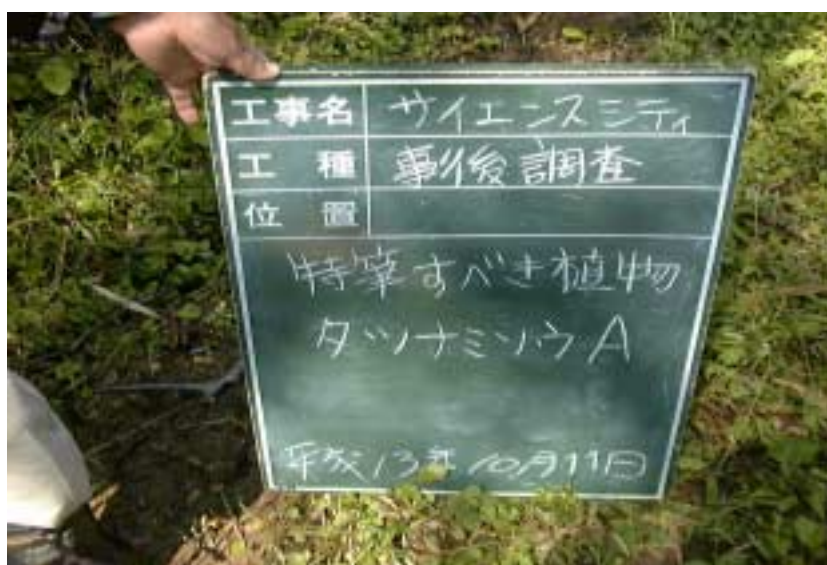 工事名 サイエンスシティ
工種 事後調査
位置
特筆すべき植物
タツナミソウA
平成13年10月11日